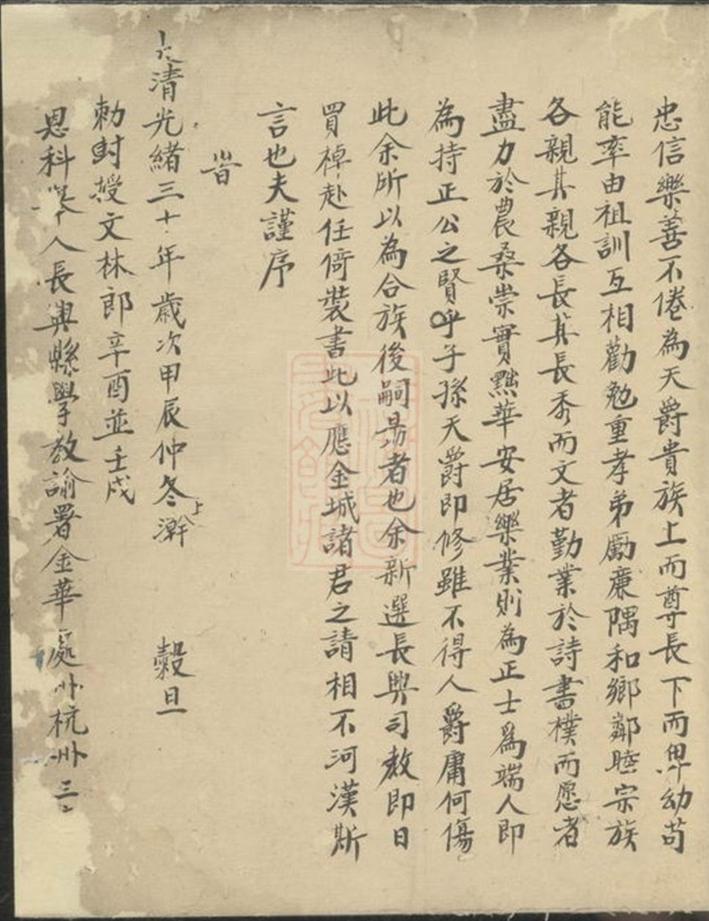 忠信樂善不倦為天爵貴族上而尊長下而卑幼苟
能率由祖訓互相勸勉重孝弟勵亷隅和鄉鄰睦宗族
各親其親各長其長秀而文者勤業於詩書樸而愿者
盡力於農桑崇實黜華安居樂業則為正士為端人即
為持正公之賢乎子孫天爵即修雖不得人爵庸何傷
此余所以為合族後嗣朂者也余新選長興司教即日
買棹赴任倚裝書此以應金城諸君之請相不河漢斯
言也夫謹序
旹
大清光緒三十年歲次甲辰仲冬上澣 穀旦
勅封授文林郎辛酉並壬戌
恩科舉人長興縣學教諭署金華處州杭州三